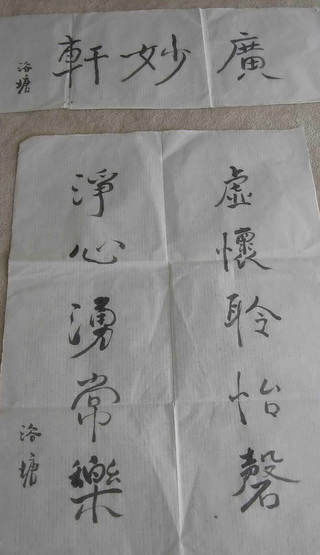 廣妙軒
洛塘
虛懷聆怡磬
淨心湧常樂
洛塘